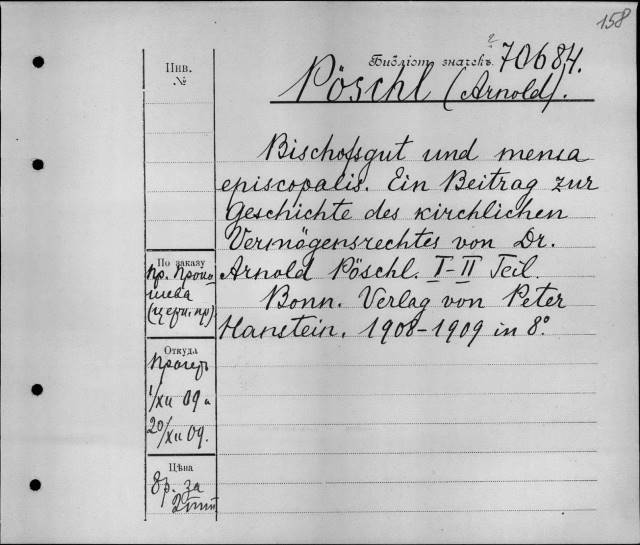 158
Инв.
№
Библіот. значекъ. 70684.
Pöschl (Arnold).
Bischofsgut und mensa
episcopalis. Ein Beitrag zur
Geschichte des kirchlichen
Vermögensrechtes von Dr.
Arnold Pöschl. I-II Teil.
Bonn. Verlag von Peter
Hanstein. 1908-1909 in 8°
По заказу
пр.
(церк. пр)
Откуда
1/XII 09 и
20/XII 09.
Цѣна
8р. за